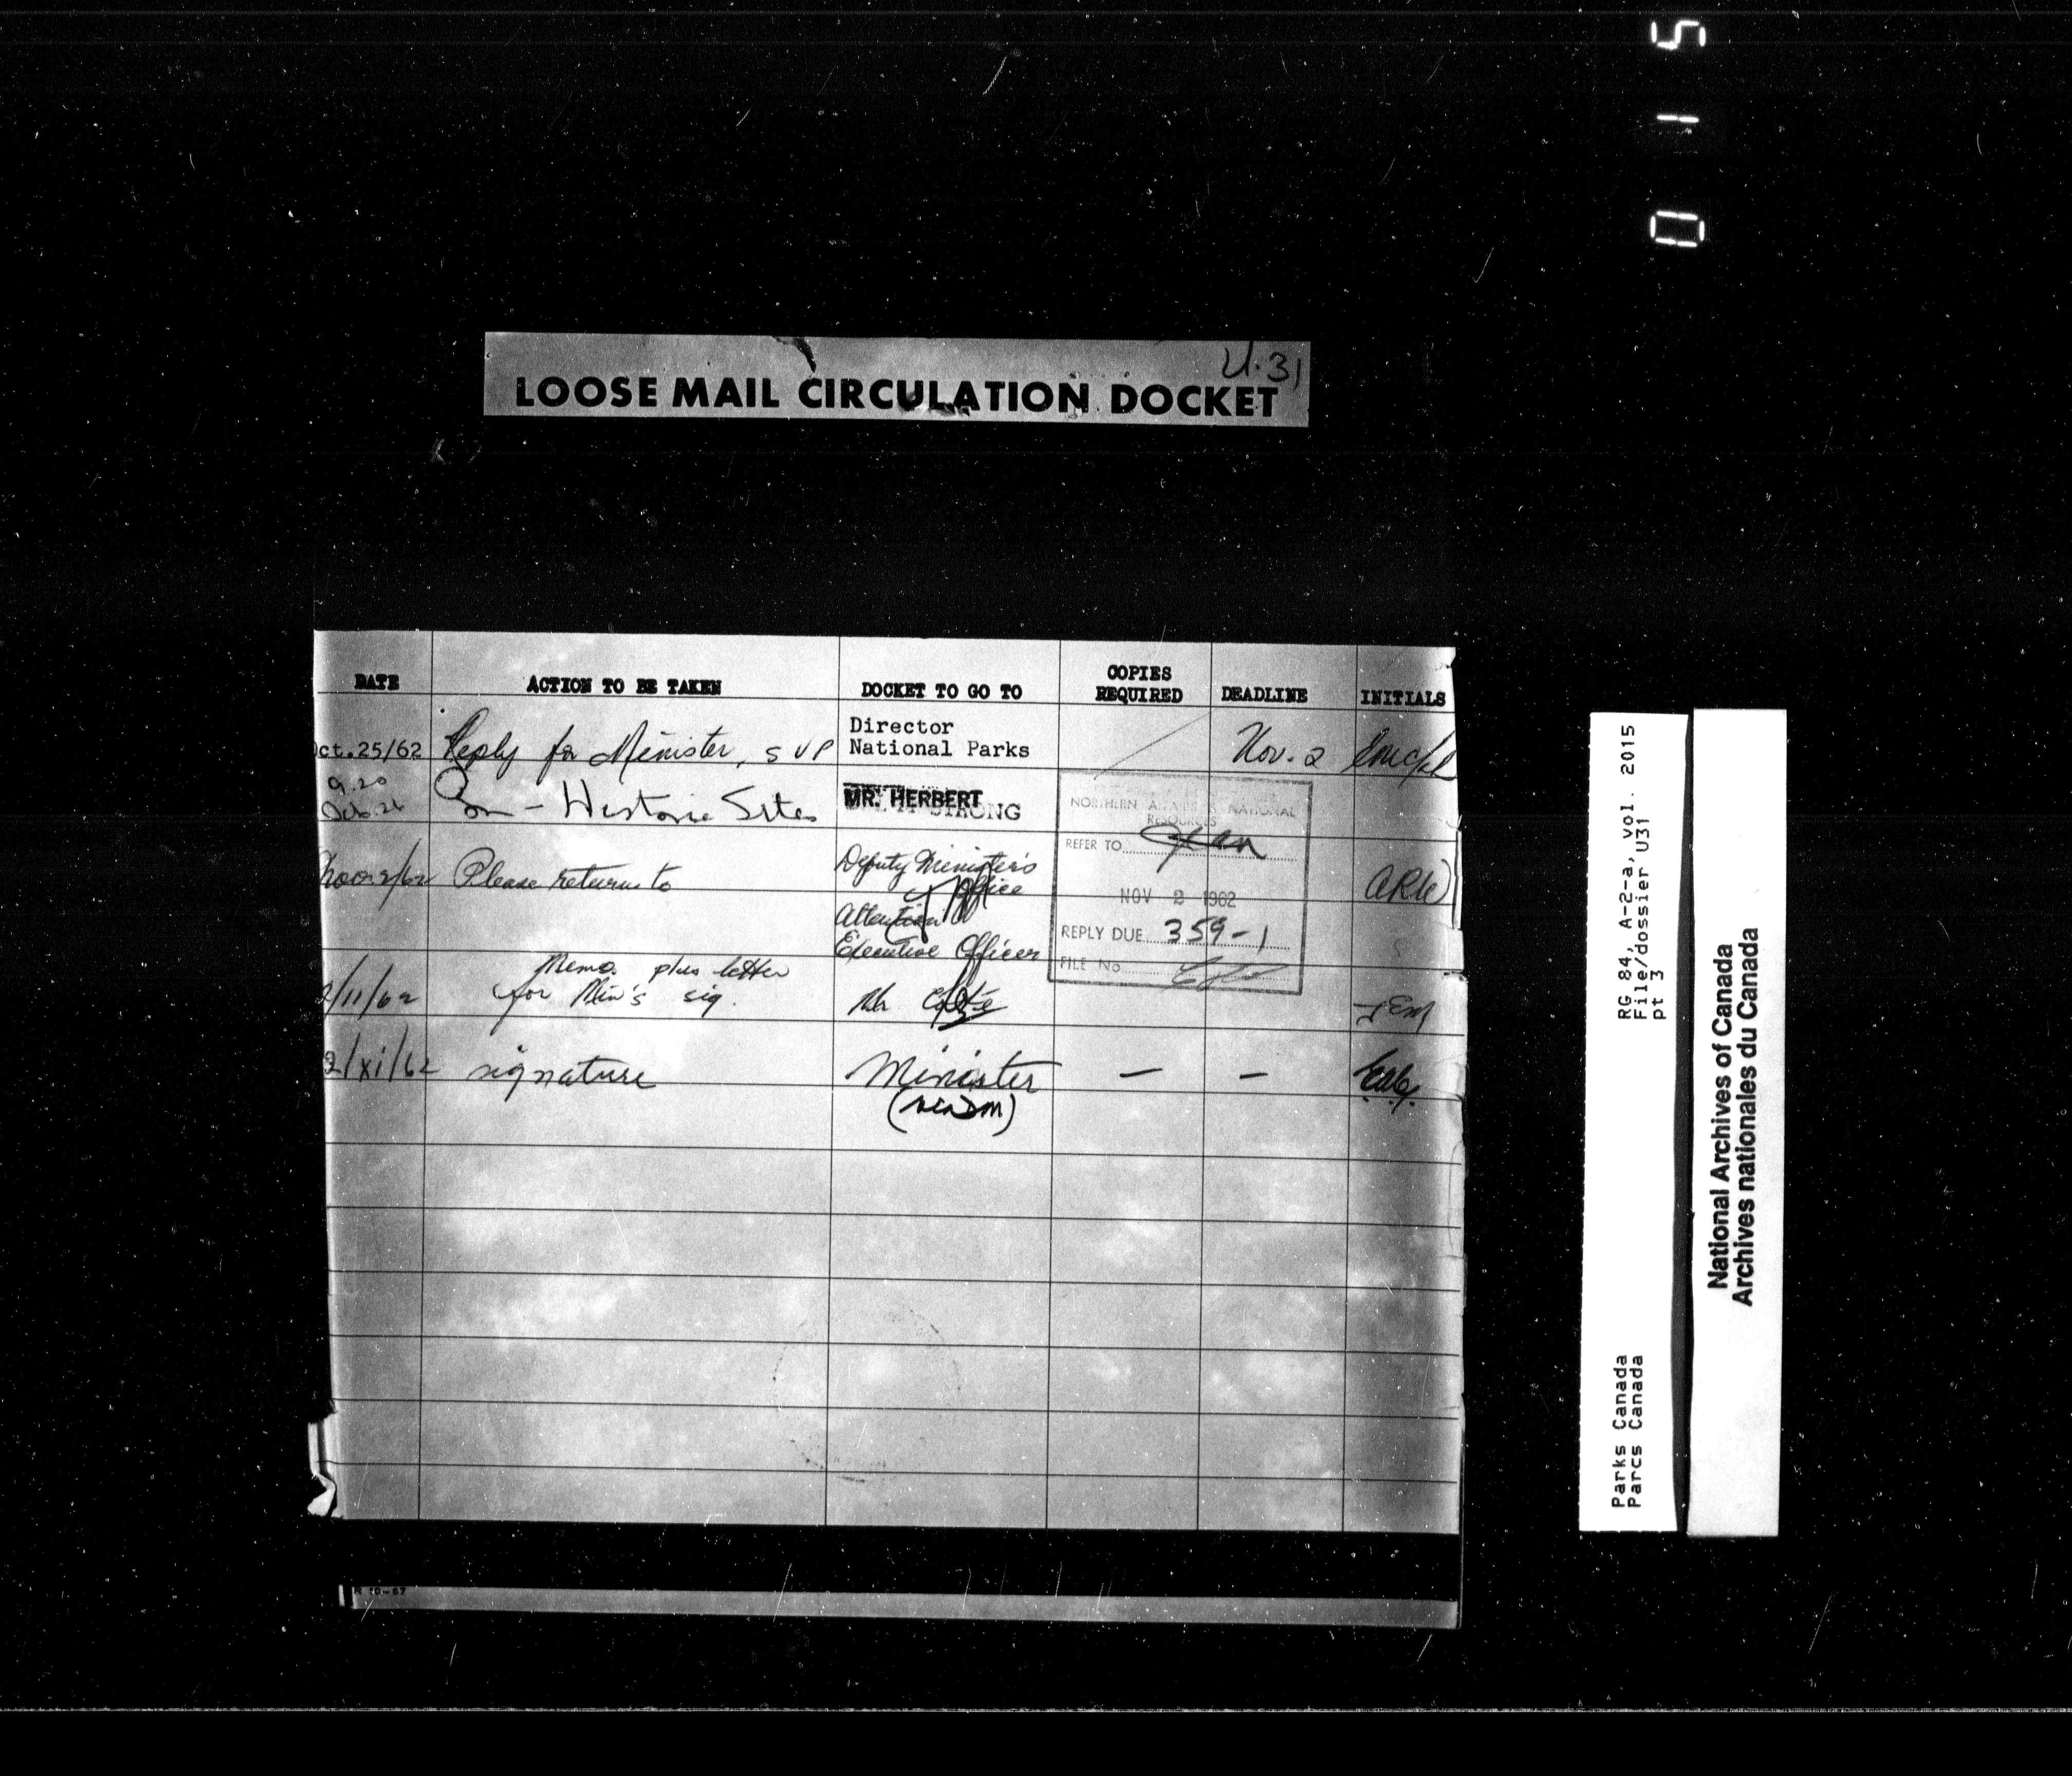 0115
U.31
LOOSE MAIL CIRCULATION DOCKET
DATE ACTION TO BE TAKEN DOCKET TO GO TO COPIES REQUIRED DEADLINE INITIALS
Oct.25/62 Reply for Minister, SVP Director National Parks Nov. 2
9.20
Oct. 26 - Historic Sites MR. HERBERT STRONG
Nov 2/62 Please return to Deputy Minister's Office
Attention
Executive Officer
2/11/62 Memo. plus letter
for Min's sig. Mr Côté JEM
2/xi/62 signature Minister — —
NORTHERN AFFAIRS & NATIONAL
RESOURCES
REFER TO
NOV 2 1962
REPLY DUE 359-1
FILE No
RG 84, A-2-a, vol. 2015
File/dossier U31
pt 3
Parks Canada
Parcs Canada
National Archives of Canada
Archives nationales du Canada